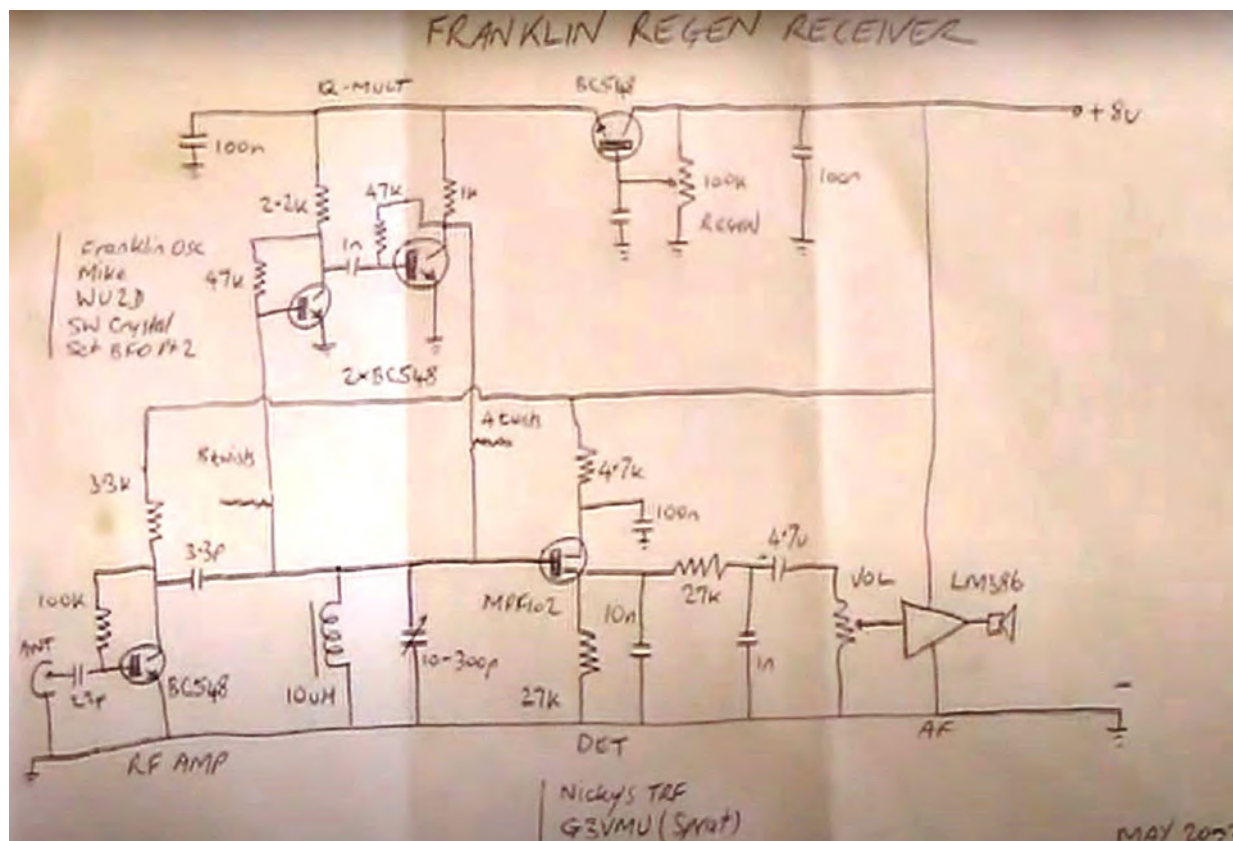 FRANKLIN REGEN RECEIVER
Q-MULT
BC548
+8V
100n
2.2k
47k
1k
100k
REGEN
100n
Franklin Osc
Mike
WU2D
SW Crystal
Set BFO Pt 2
47k
1n
2xBC548
8 twists
4 twists
3.3k
4.7k
100n
3.3p
4.7u
100k
MPF102
27k
VOL
LM386
ANT
BC548
10uH
10-300p
10n
1n
27k
-
RF AMP
DET
AF
Nicky's TRF
G3VMU (Sprat)
MAY